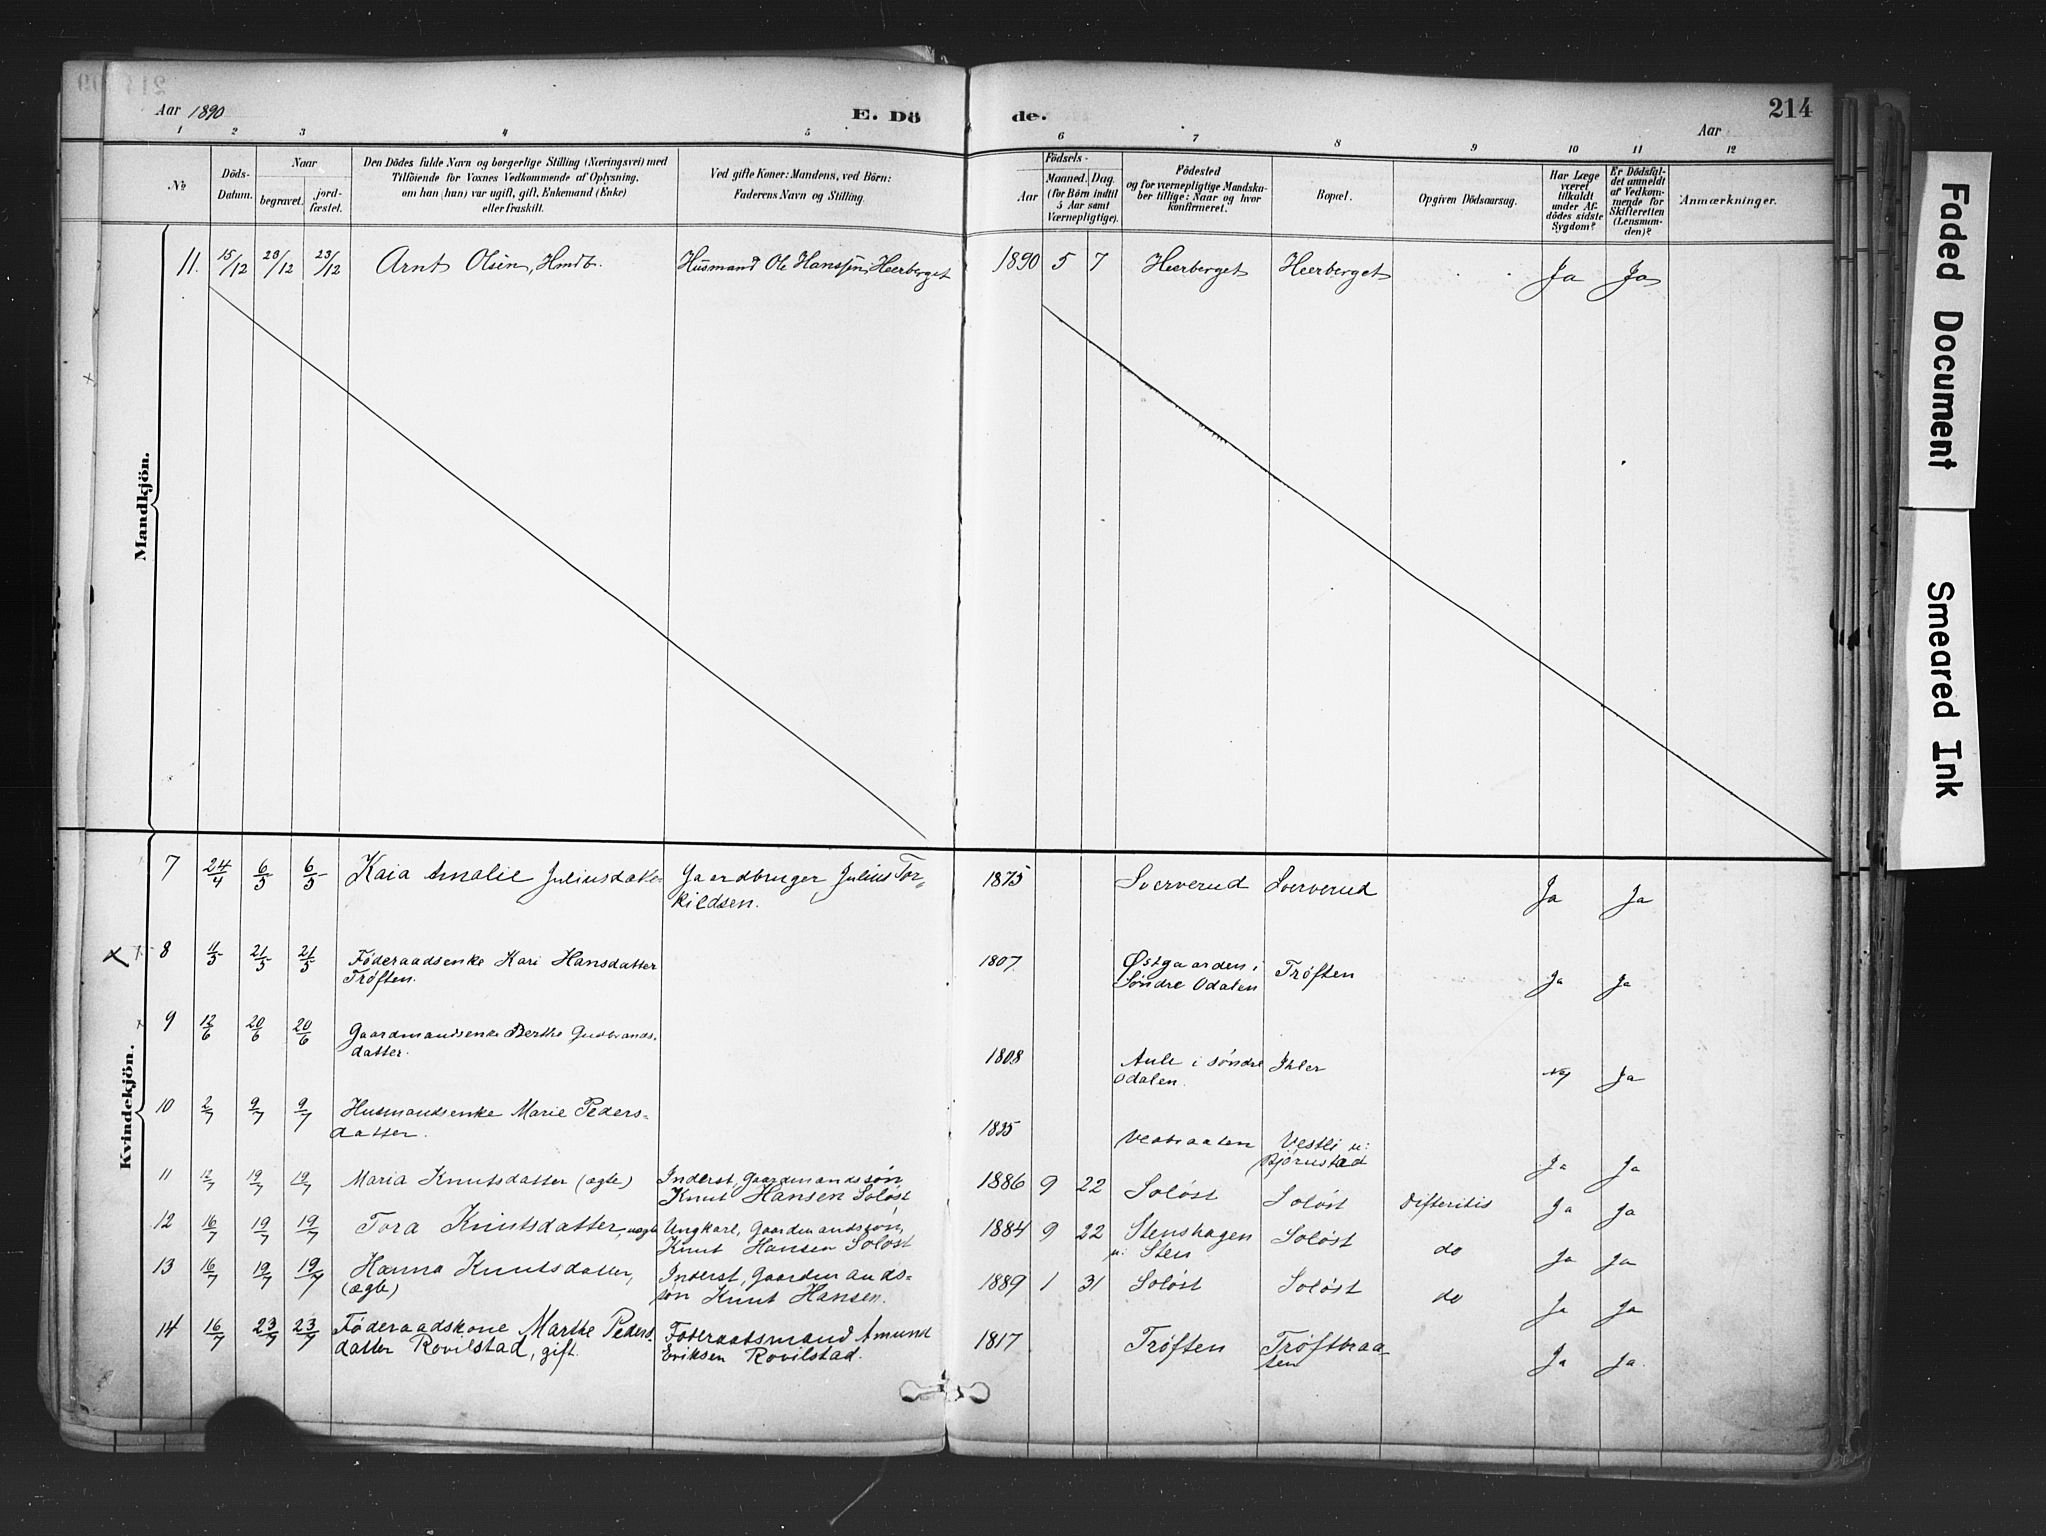 Aar 1890
E. Döde.
Aar
214
1 2 3 4 5 6 7 8 9 10 11 12
№
Döds-
Datum.
Naar
begravet.
jord-
fæstet.
Den Dödes fulde Navn og borgerlige Stilling (Næringsvei) med
Tilföiende for Voxnes Vedkommende af Oplysning,
om han (hun) var ugift, gift, Enkemand (Enke)
eller fraskilt.
Ved gifte Koner: Mandens, ved Börn:
Faderens Navn og Stilling.
Födsels-
Aar
Maaned. Dag.
(for Börn indtil
5 Aar samt
Værnepligtige).
Födested
og for værnepligtige Mandska-
ber tillige: Naar og hvor
konfirmeret.
Bopæl.
Opgiven Dödsaarsag.
Har Læge
været
tilkaldt
under Af-
dödes sidste
Sygdom?
Er Dödsfal-
det anmeldt
af Vedkom-
mende for
Skifteretten
(Lensman-
den)?
Anmærkninger.
Mandkjön.
11. 15/12 23/12 23/12 Arnt Olsen, Hmdb. Husmand Ole Hanssen, Heerberget 1890 5 7 Heerberget Heerberget Ja Ja
Kvindekjön.
7 24/4 6/5 6/5 Kaia Amalie Juliusdatter Gaardbruger Julius Tor-
kildsen. 1875 Sververud Sververud Ja Ja
8 11/5 21/5 21/5 Föderaadsenke Kari Hansdatter
Tröften. 1807 Østgaarden i
Söndre Odalen Tröften Ja Ja
9 12/6 20/6 20/6 Gaardmandsenke Berthe Gudbrands-
datter. 1808 Aule i söndre
Odalen. Ihler Nej Ja
10 2/7 9/7 9/7 Husmandsenke Marie Peders-
datter. 1835 Vestli u:
Bjørnstad Ja Ja
11 12/7 19/7 19/7 Maria Knutsdatter (ægte) Inderst, Gaardmandssøn
Knut Hansen Soløst 1886 9 22 Soløst Soløst Difteritis Ja Ja
12 16/7 19/7 19/7 Tora Knutsdatter, uægte Ungkarl, Gaardmandssøn,
Knut Hansen Soløst 1884 9 22 Stenshagen
u: Sten Soløst do Ja Ja
13 16/7 19/7 19/7 Hanna Knutsdatter,
(ægte) Inderst, Gaardmands-
søn Knut Hansen. 1889 1 31 Soløst Soløst do Ja Ja
14 16/7 23/7 23/7 Föderaadskone Marthe Peders
datter Rovilstad, gift. Föderaadsmand Amund
Eriksen Rovilstad. 1817 Trøften Trøftbraa-
ten Ja Ja.
Faded Document
Smeared Ink